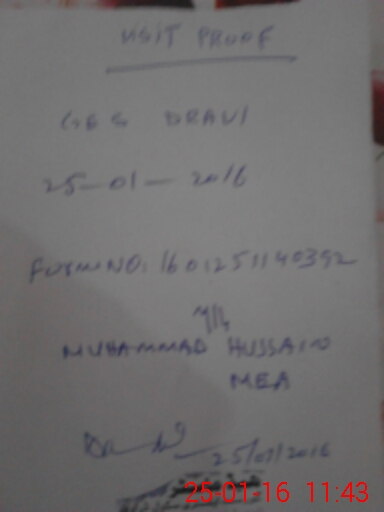 VISIT PROOF
GES DRAVI
25-01-2016
FORM NO: 1601251140392
MUHAMMAD HUSSAIN
MEA
25/01/2016
25-01-16 11:43